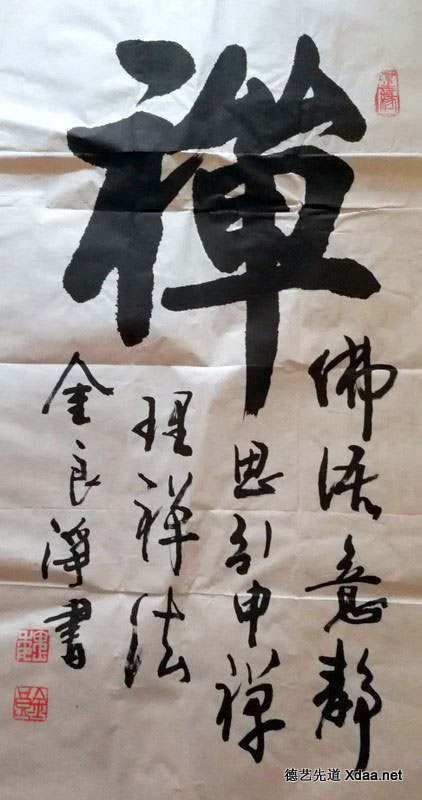 禪
佛语意静
思引申禅
理禅法
金良淨書
德艺先道 Xdaa.net